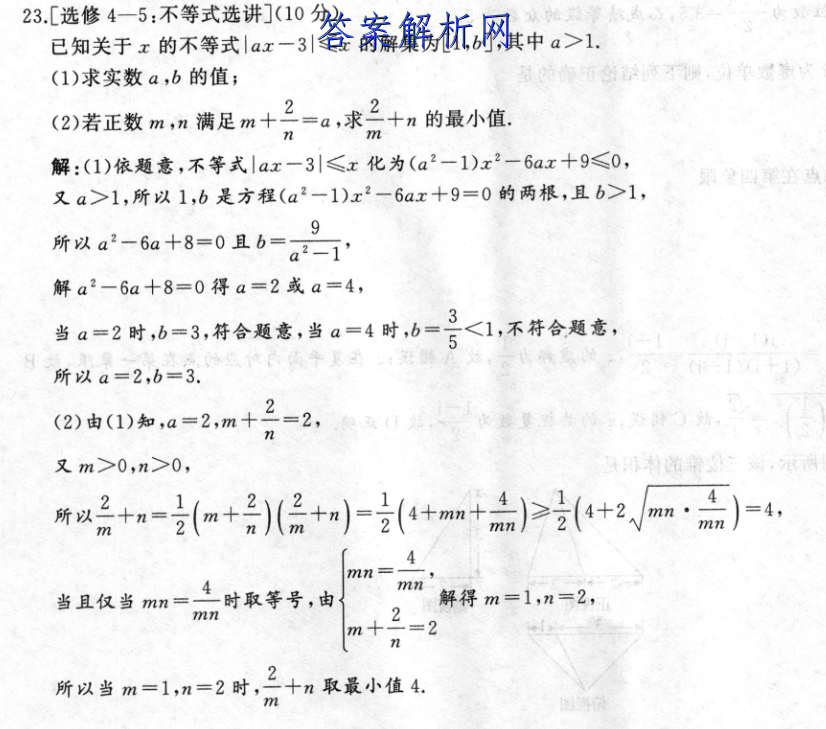 23.[选修 4—5:不等式选讲](10 分)
答案解析网
已知关于 x 的不等式|ax-3|≤x 的解集为[1,b],其中 a>1.
(1)求实数 a,b 的值;
(2)若正数 m,n 满足 m+2/n=a,求2/m+n 的最小值.
解:(1)依题意,不等式|ax-3|≤x 化为(a²-1)x²-6ax+9≤0,
又 a>1,所以 1,b 是方程(a²-1)x²-6ax+9=0 的两根,且 b>1,
所以 a²-6a+8=0 且 b=9/(a²-1),
解 a²-6a+8=0 得 a=2 或 a=4,
当 a=2 时,b=3,符合题意,当 a=4 时,b=3/5<1,不符合题意,
所以 a=2,b=3.
(2)由(1)知,a=2,m+2/n=2,
又 m>0,n>0,
所以2/m+n=1/2(m+2/n)(2/m+n)=1/2(4+mn+4/mn)≥1/2(4+2√(mn·4/mn))=4,
当且仅当 mn=4/mn时取等号,由{mn=4/mn, m+2/n=2 解得 m=1,n=2,
所以当 m=1,n=2 时,2/m+n 取最小值 4.